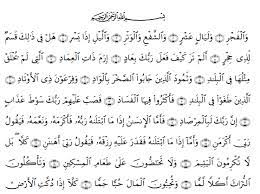 بِسْمِ اللَّهِ الرَّحْمَٰنِ الرَّحِيمِ
وَالْفَجْرِ وَلَيَالٍ عَشْرٍ وَالشَّفْعِ وَالْوَتْرِ وَاللَّيْلِ إِذَا يَسْرِ هَلْ فِي ذَٰلِكَ قَسَمٌ
لِّذِي حِجْرٍ أَلَمْ تَرَ كَيْفَ فَعَلَ رَبُّكَ بِعَادٍ إِرَمَ ذَاتِ الْعِمَادِ الَّتِي لَمْ يُخْلَقْ
مِثْلُهَا فِي الْبِلَادِ وَثَمُودَ الَّذِينَ جَابُوا الصَّخْرَ بِالْوَادِ وَفِرْعَوْنَ ذِي الْأَوْتَادِ
الَّذِينَ طَغَوْا فِي الْبِلَادِ فَأَكْثَرُوا فِيهَا الْفَسَادَ فَصَبَّ عَلَيْهِمْ رَبُّكَ سَوْطَ عَذَابٍ
إِنَّ رَبَّكَ لَبِالْمِرْصَادِ فَأَمَّا الْإِنسَانُ إِذَا مَا ابْتَلَاهُ رَبُّهُ فَأَكْرَمَهُ وَنَعَّمَهُ فَيَقُولُ
رَبِّي أَكْرَمَنِ وَأَمَّا إِذَا مَا ابْتَلَاهُ فَقَدَرَ عَلَيْهِ رِزْقَهُ فَيَقُولُ رَبِّي أَهَانَنِ كَلَّا بَل
لَّا تُكْرِمُونَ الْيَتِيمَ وَلَا تَحَاضُّونَ عَلَىٰ طَعَامِ الْمِسْكِينِ وَتَأْكُلُونَ
التُّرَاثَ أَكْلًا لَّمًّا وَتُحِبُّونَ الْمَالَ حُبًّا جَمًّا كَلَّا إِذَا دُكَّتِ الْأَرْضُ